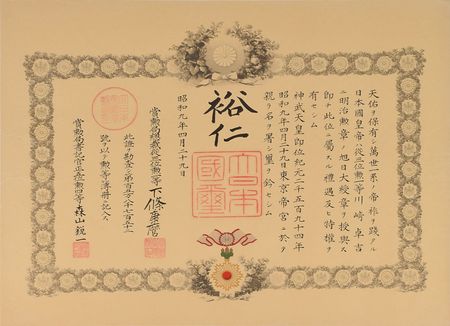 天佑ヲ保有シ萬世一系ノ帝祚ヲ踐タル
日本國皇帝ハ從三位勲二等川﨑卓吉
ニ明治勲章ノ旭日大綬章ヲ授與ス
即チ此位ニ属スル禮遇及ヒ特權ヲ
有セシム
神武天皇即位紀元二千五百九十四年
昭和九年四月二十九日東京帝宮ニ於テ
親ラ名ヲ署シ璽ヲ鈐セシム
裕仁
大日本國璽
昭和九年四月二十九日
賞勲局總裁從三位勲二等下條康麿
此證ヲ勘査シ第
號ヲ以テ勲一等簿冊ニ記入ス
賞勲局書記官正五位勲四等森山鋭一